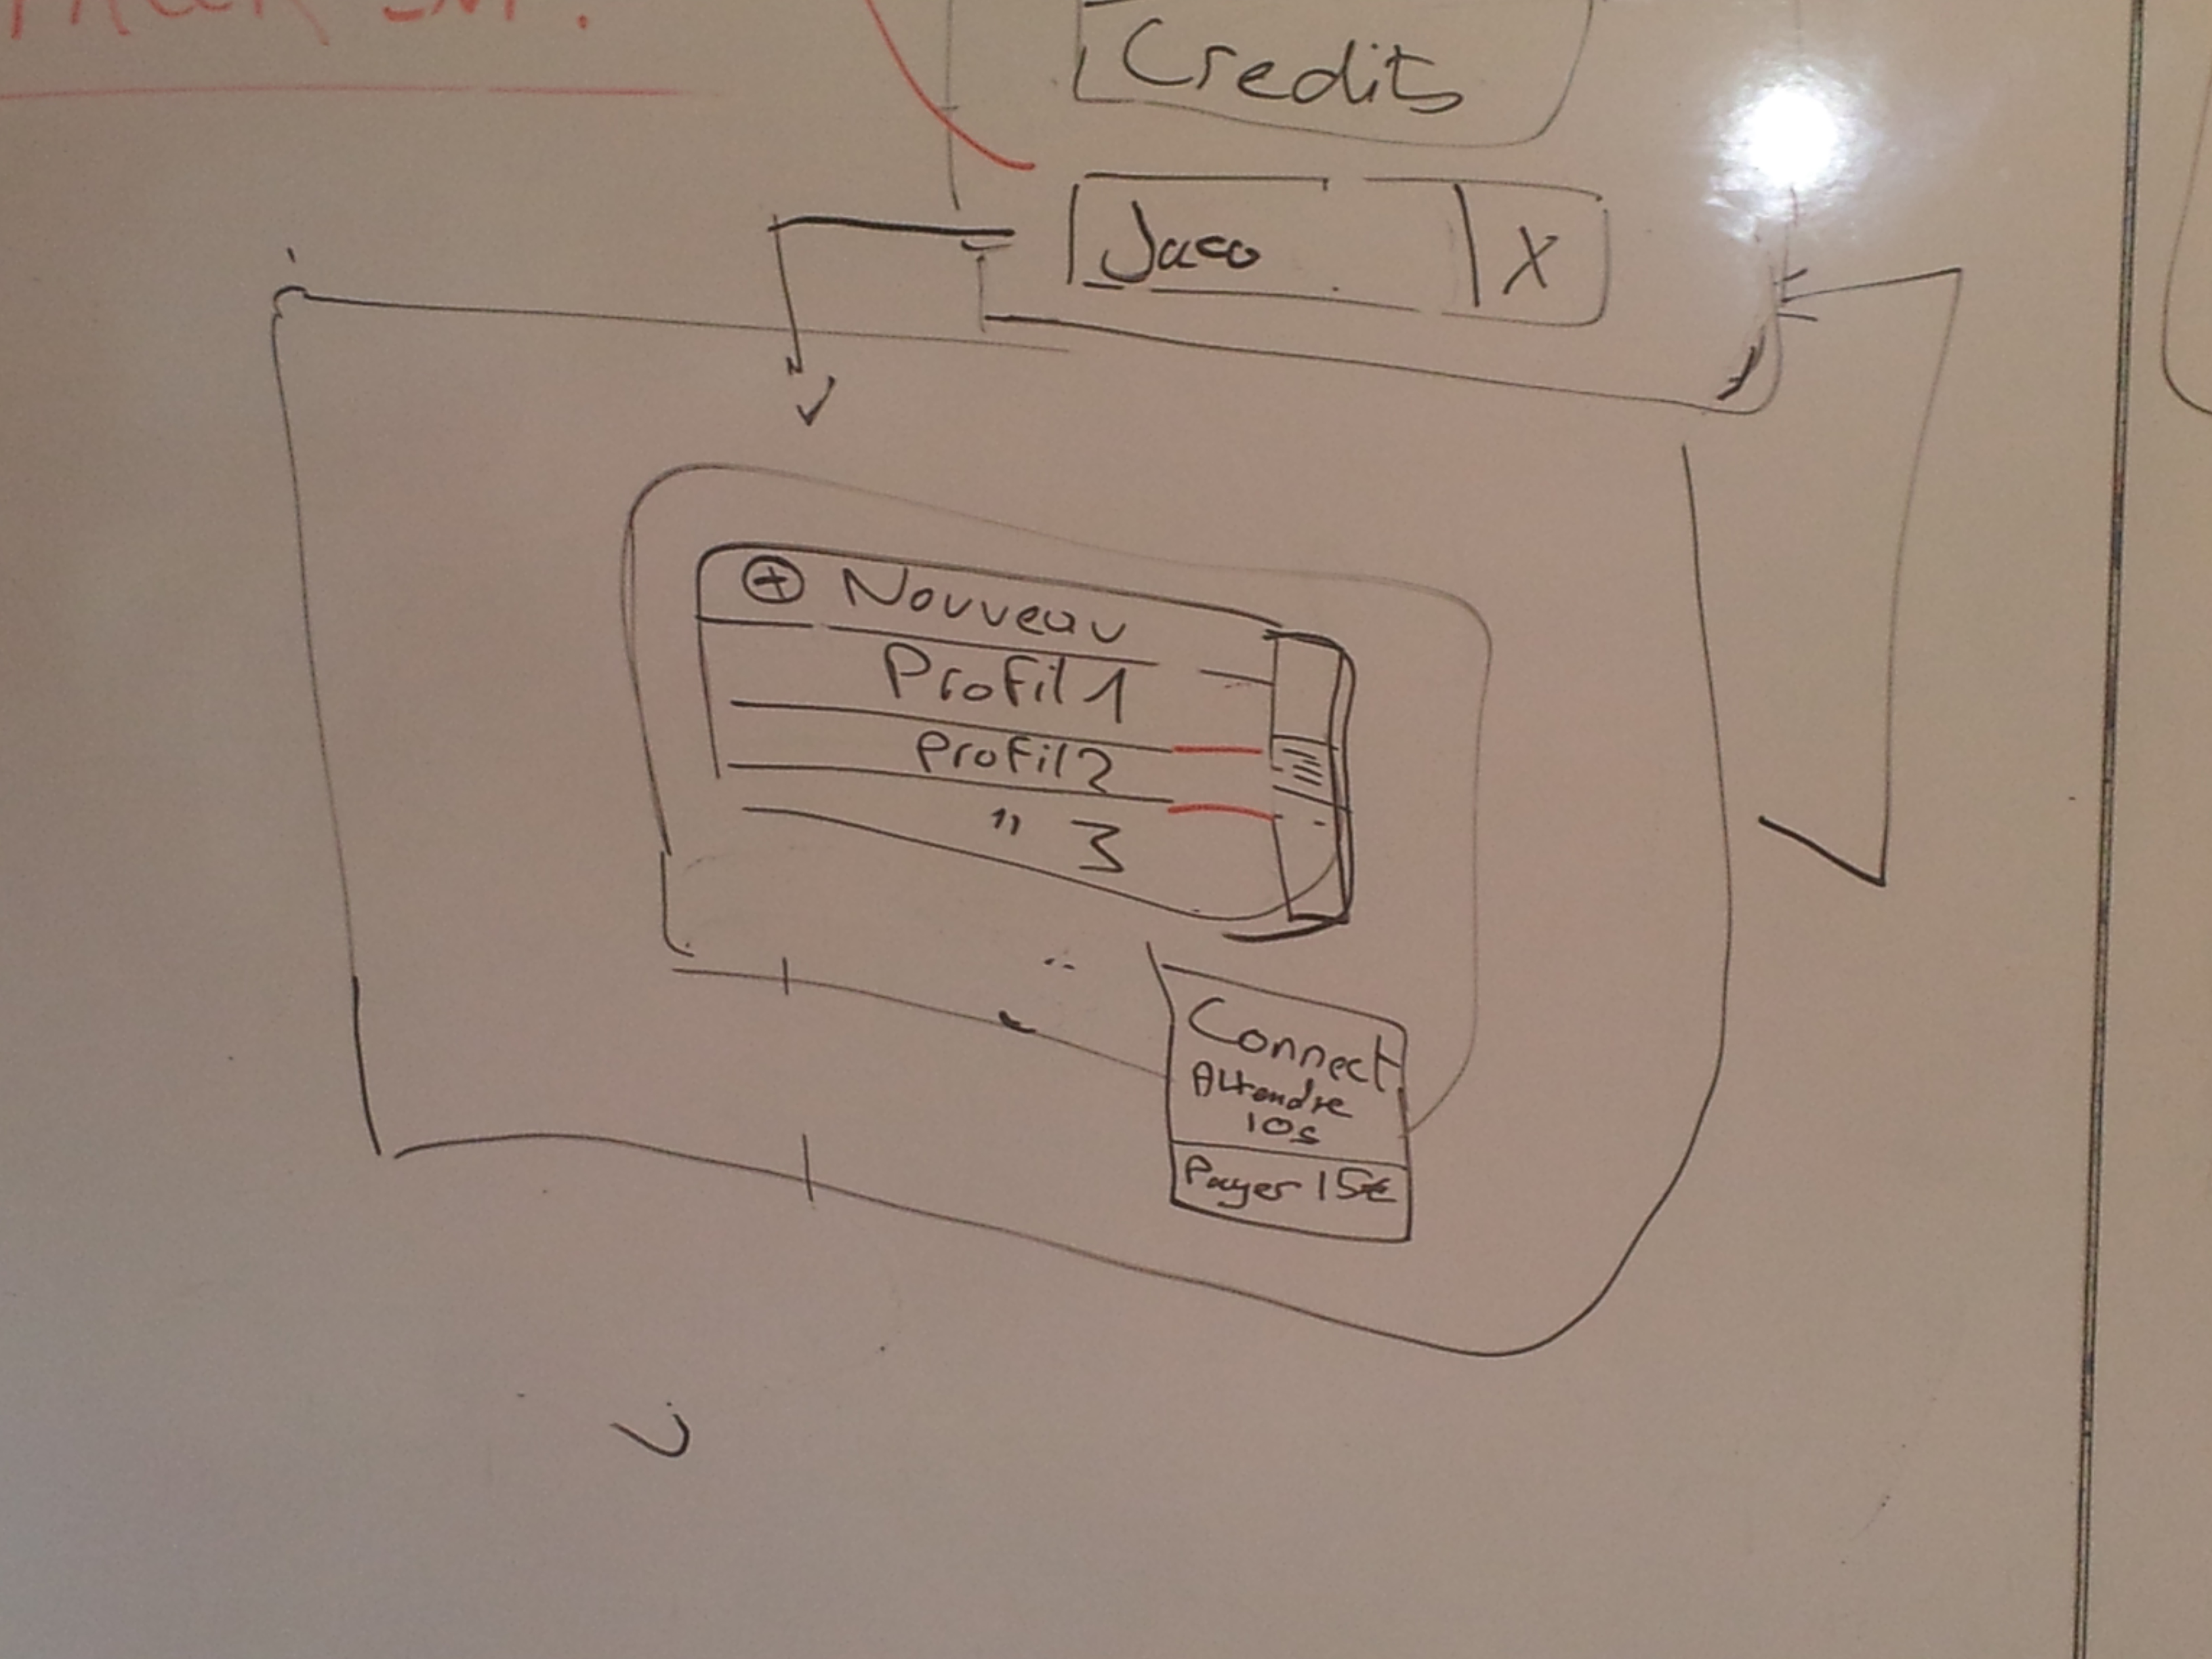 Credits
Jaco X
+ Nouveau
Profil 1
Profil 2
" 3
Connect
Attendre
10s
Payer 15€